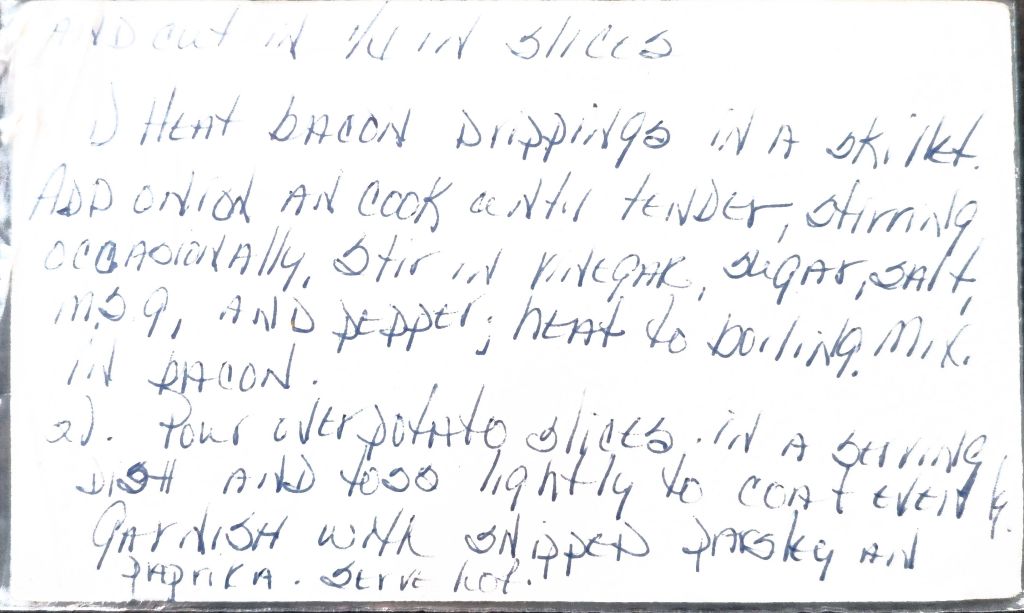 AND cut in 1/4 in slices
1) Heat bacon drippings in a skillet.
Add onion an cook until tender, stirring
occasionally, stir in vinegar, sugar, salt,
M.S.G, and pepper; heat to boiling. Mix
in bacon.
2). Pour over potato slices. in a serving
dish and toss lightly to coat evenly.
Garnish with snipped parsley an
paprika. Serve hot.